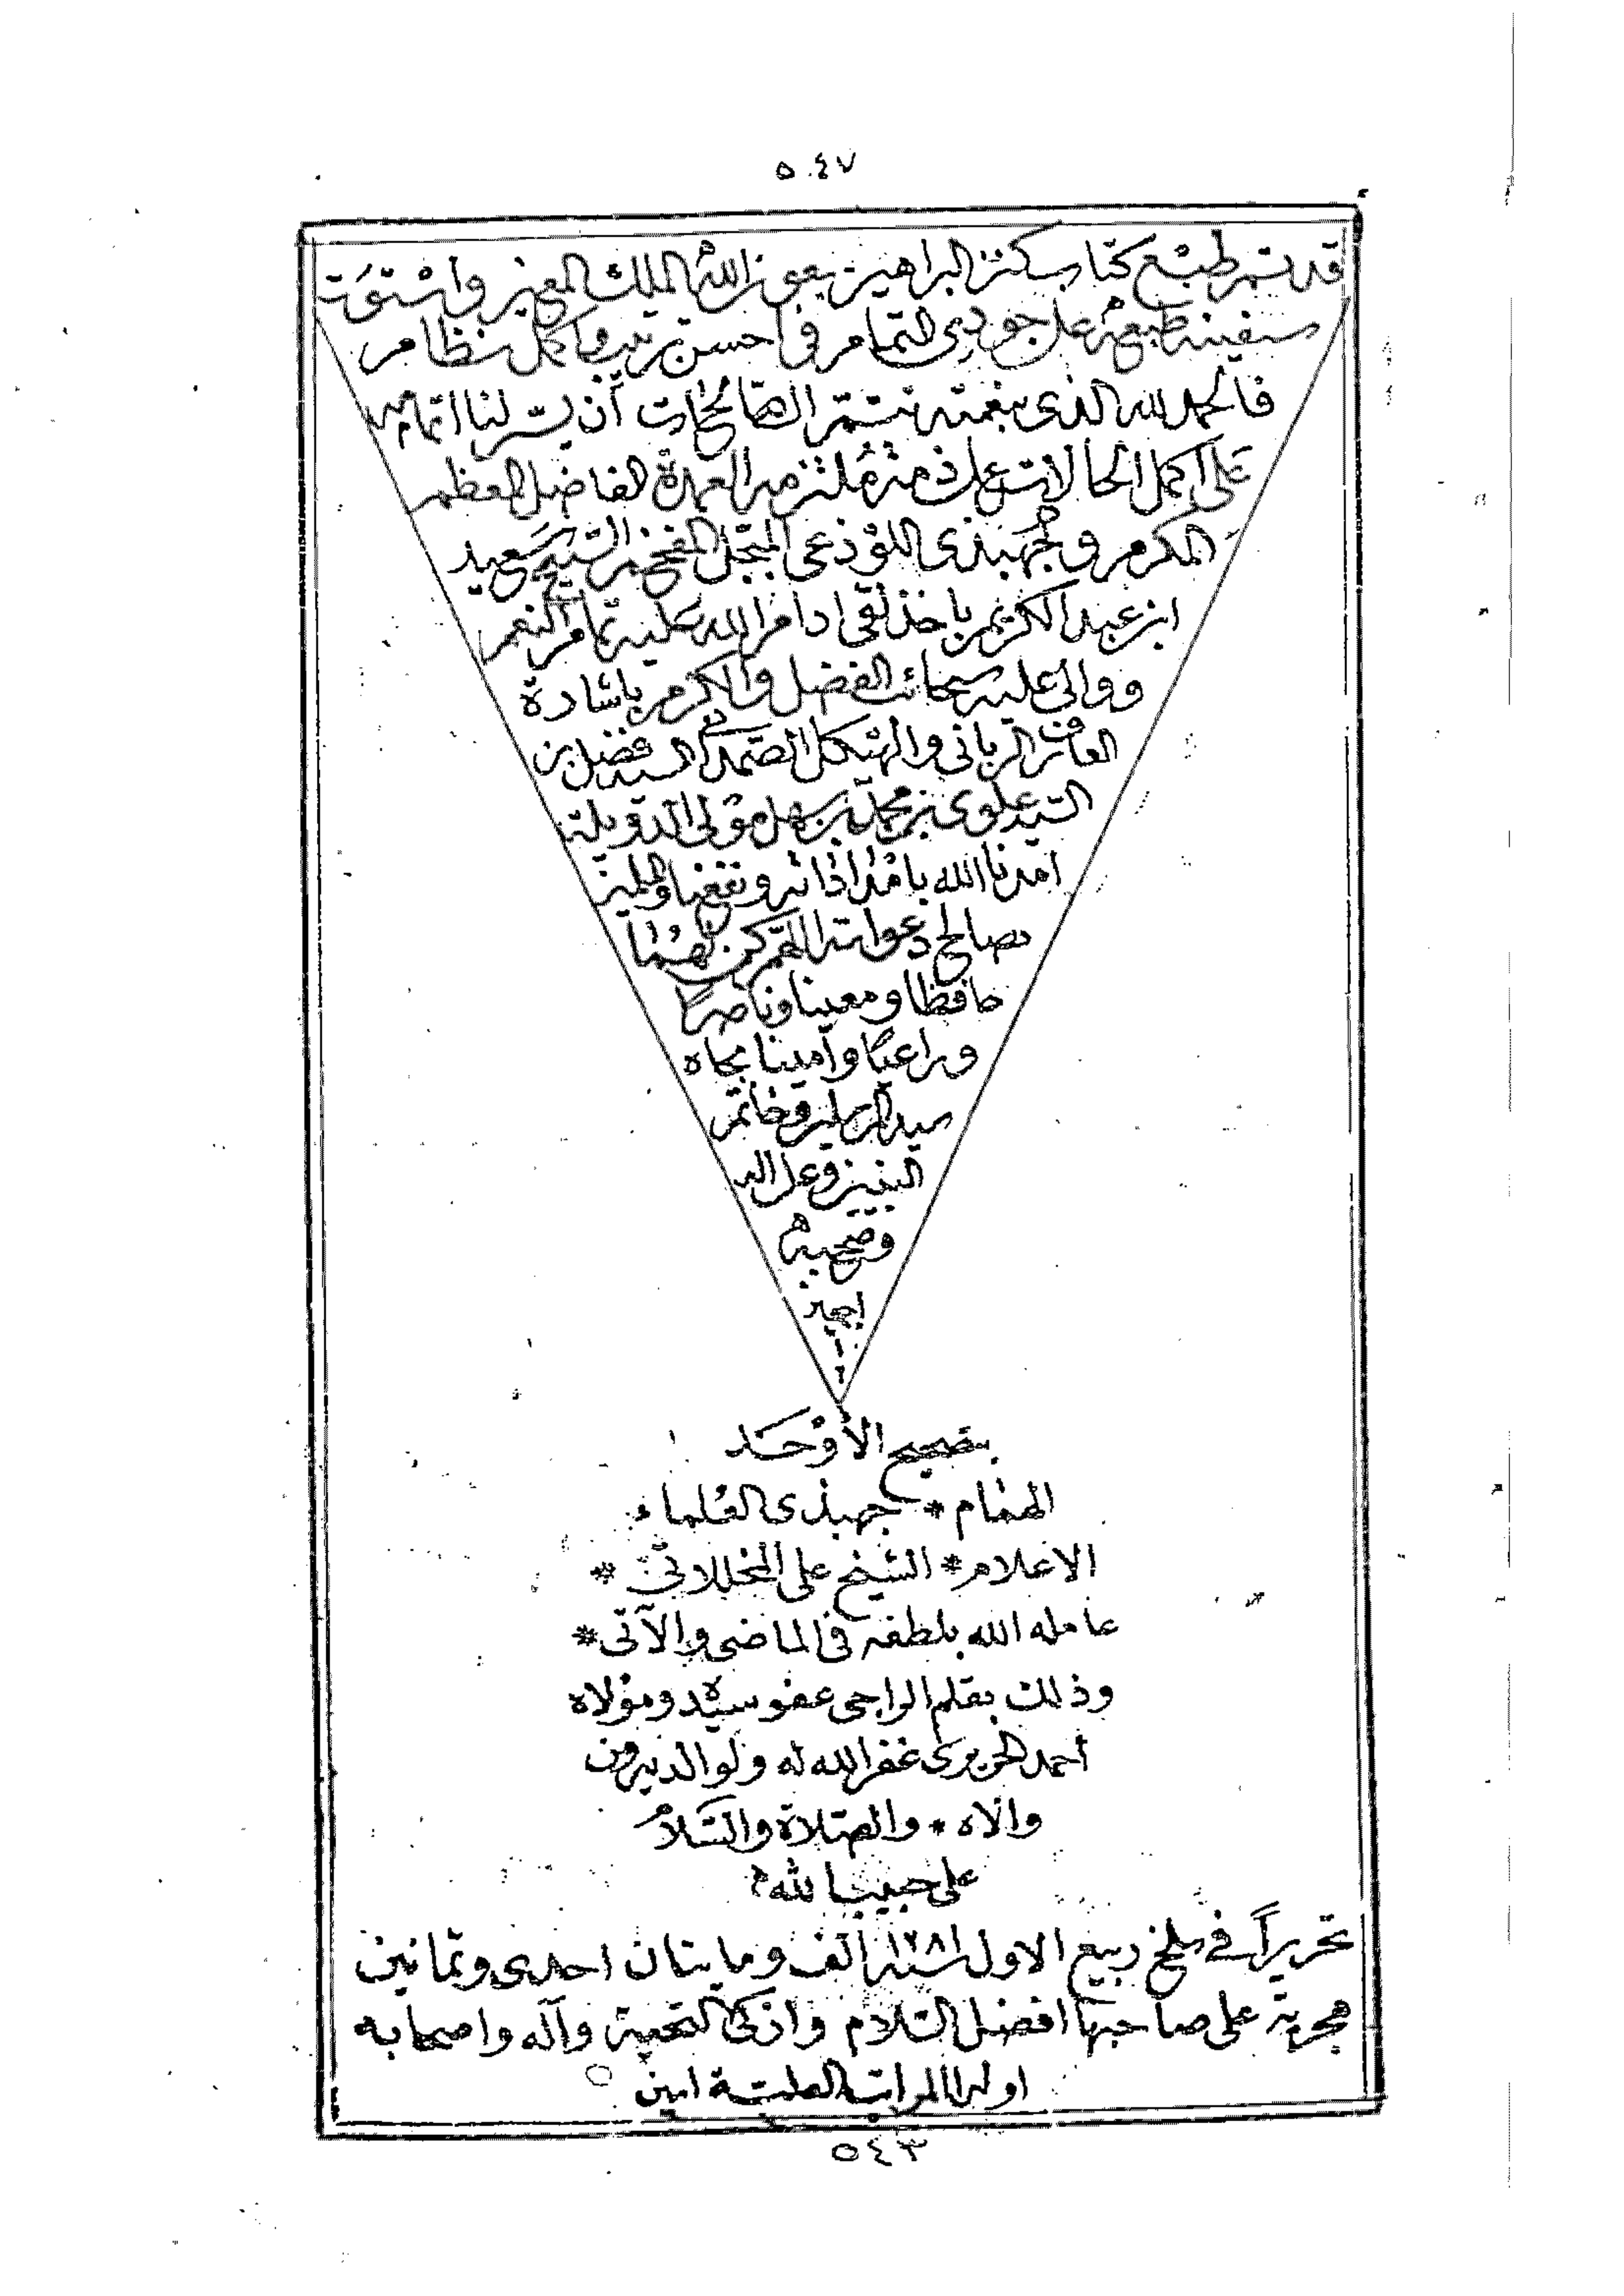 ٥٤٧
قد تم طبع كتاب كنز البراهين بعون الله الملك المعين واستوت
سفينة طبعه على جودي التمام في احسن ترتيب واكمل نظام
فالحمد لله الذي بنعمته تتم الصالحات أن يسّر لنا اتمامه
على اكمل الحالات على ذمة ملتزمه العمدة الفاضل المعظم
المكرم وجهبذي اللوذعي المبجل المفخم الشيخ سعيد
ابن عبد الكريم باخذلقى ادام الله عليه تمام النعم
ووالى عليه سحائب الفضل والكرم باشادة
العارف الرباني والهيكل الصمداني السيد فضل بن
السيد علوي بن محمد بن سهل مولى الدويلة
امدنا الله بامداداته ونفعنا والمسلمين
بصالح دعواته اللهم كن لهما
حافظا ومعينا وناصرًا
وراعيًا وأمينا بجاه
سيد المرسلين وخاتم
النبيين وعلى اله
وصحبه
اجمعين
بتصحيح الأوْحَد
الهمام * جهبذى العُلماء
الاعلام * الشيخ على المخللاتي *
عامله الله بلطفه في الماضى والآتى *
وذلك بقلم الراجى عفو سيده ومَوْلاه
أحمد الحريرى غفر الله له ولوالديه ومن
والاه * والصلاة والسَّلامُ
على حبيب الله
تحريرًا في سلخ ربيع الاول سنة ١٢٨١ الف ومايتان احدى وثمانين
هجرية على صاحبها افضل السلام وازكى التحية وآله واصحابه
اولى المراتب العلية امين
٥٤٣